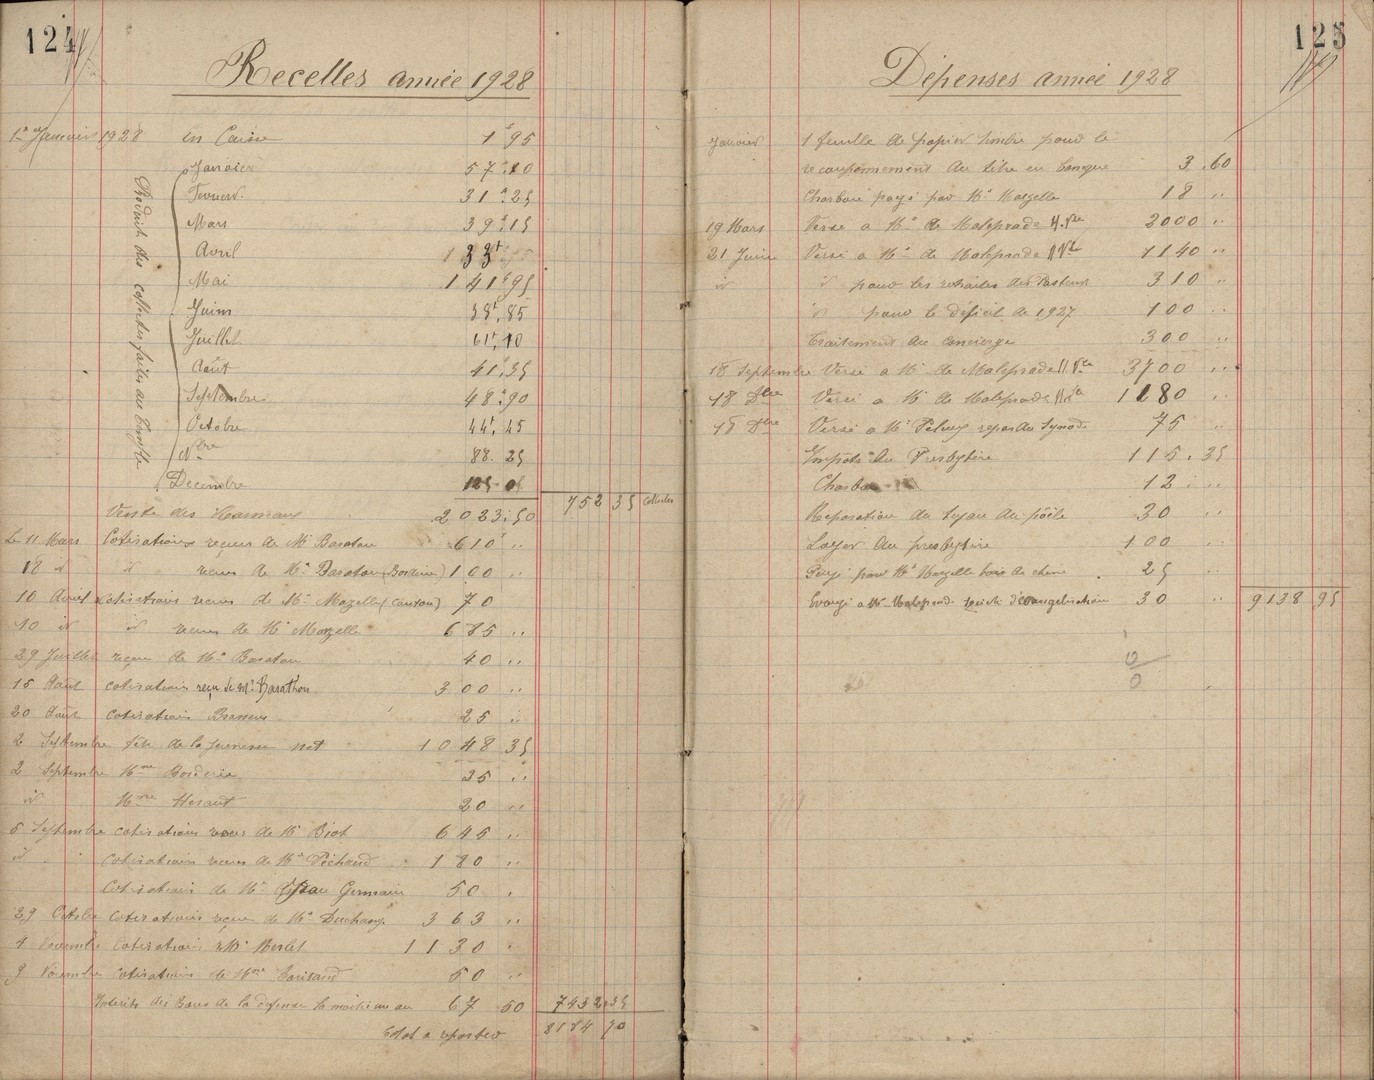 124
Recettes année 1928
1er Janvier 1928 en Caisse 1f 95
Produit des collectes faites au Temple
Janvier 57f.10
Février. 31f.25
Mars 39f.15
Avril 133f
Mai 141f,95
Juin 38f,85
Juillet 61f,10
Août 41f.35
Septembre 48f.90
Octobre 44f.45
Nbre 88.25
Décembre 125
752 35 collectes
Vente des 2023.50
Le 11 Mars Cotisations reçues de Mr Baraton 610 "
18 id id reçues de Mr Baraton (Borderie) 100 "
10 Avril Cotisations reçues de Mr Mazelle (Canton) 70
10 id id reçues de Mr Mazelle 685 "
29 Juillet reçues de Mr Baraton 40 "
15 Août cotisations reçu de Mr Barathon 300 "
20 Août cotisations 25 "
2 Septembre fête de la jeunesse net 1048 35
2 Septembre Mme Borderie 25 "
id Mme Hesaut 20 "
5 Septembre cotisations reçues de Mr Biot 645 "
id cotisations reçues de Mr Péchaud 180 "
Cotisations de Mr Germain 50 "
29 Octobre cotisations reçues de Mr 363 "
4 Novembre cotisations Mr Merlet 1130 "
9 Novembre cotisations de Mme 50 "
Intérêts des Bons de la défense 67 50 7432.35
Total à reporter 8184 70
125
Dépenses année 1928
Janvier 1 feuille de papier timbre pour le
recouponnement du titre en banque 3.60
Charbon payé par Mr Mazelle 18 "
19 Mars Versé a Mr de Maleprade H. Vne 2000 "
21 Juin Versé a Mr de Maleprade 1140 "
id id pour les retraites des Pasteurs 310 "
id pour le déficit de 1927 100 "
Traitement du Concierge 300 "
18 Septembre Versé a Mr de Maleprade 3700 "
18 Dbre Versé a Mr de Maleprade 1180 "
18 Dbre Versé a Mr repas du Synode 75 "
Impôts du Presbytère 115.35
Charbon 12 "
Réparation du tuyau du poêle 30 "
Loyer du presbytère 100 "
Payé pour Mr Mazelle bois de chêne 25 "
Envoyé a Mr Maleprade société d'évangélisation 30 " 9138 95